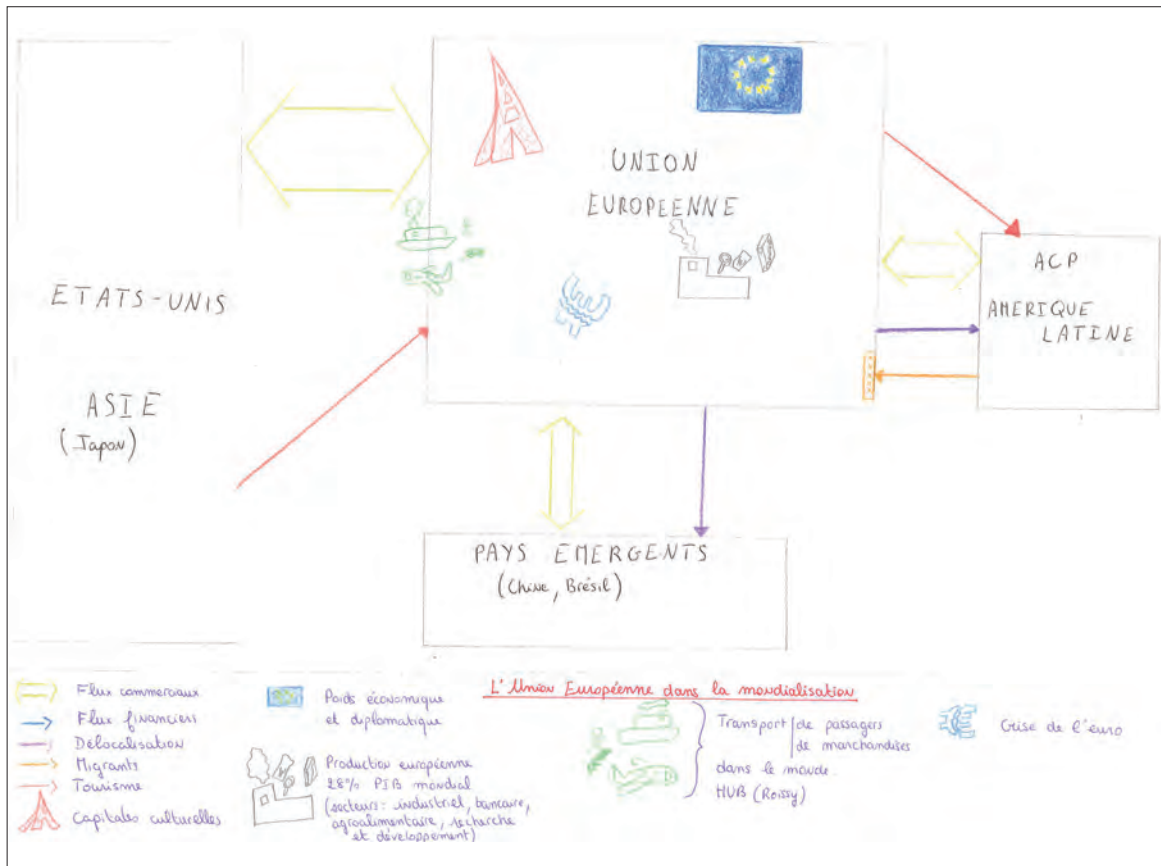 UNION
EUROPEENNE
ETATS-UNIS
ASIE
(Japon)
ACP
AMERIQUE
LATINE
PAYS EMERGENTS
(Chine, Brésil)
L'Union Européenne dans la mondialisation
Flux commerciaux
Flux financiers
Délocalisation
Migrants
Tourisme
Capitales culturelles
Poids économique
et diplomatique
Production européenne
28% PIB mondial
(secteurs: industriel, bancaire,
agroalimentaire, recherche
et développement)
Transport de passagers
de marchandises
dans le monde
HUB (Roissy)
Crise de l'euro